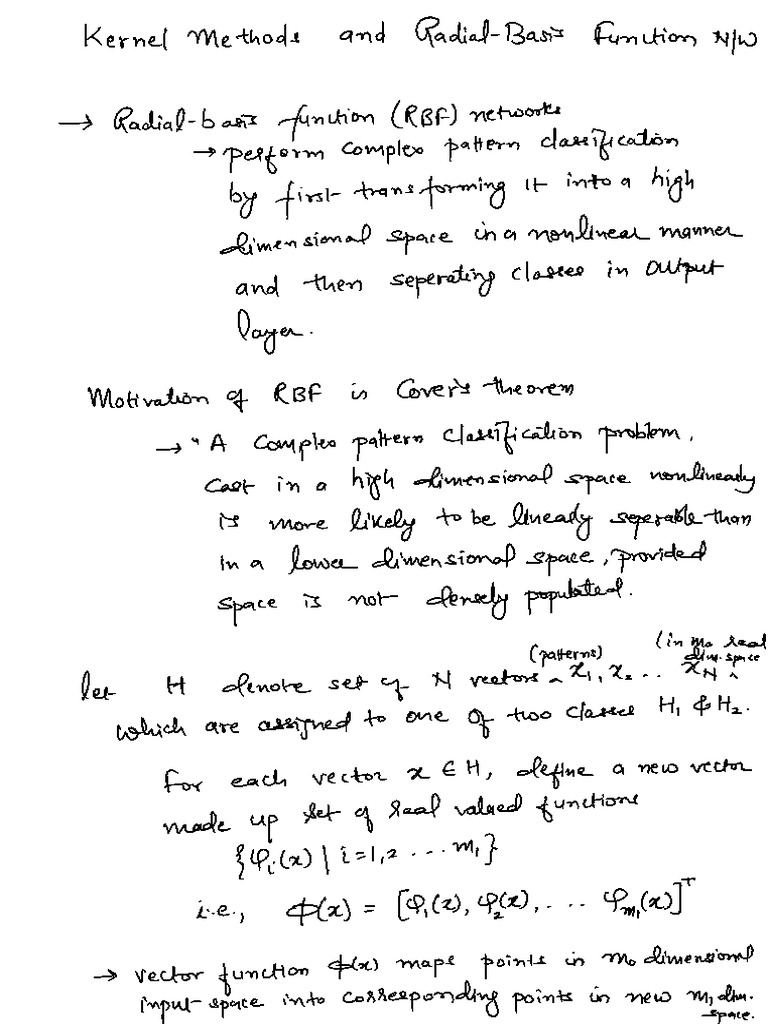 Kernel Methods and Radial-Basis Function N/W
→ Radial-basis function (RBF) networks
→ perform complex pattern classification
by first transforming it into a high
dimensional space in a nonlinear manner
and then seperating classes in output
layer.
Motivation of RBF is Cover's theorem
→ " A complex pattern classification problem,
cast in a high dimensional space nonlinearly
is more likely to be linearly seperable than
in a lower dimensional space, provided
space is not densely populated.
(patterns) (in m₀ real dim. space
let H denote set of N vectors ^ x₁, x₂ ... x_N ^
which are assigned to one of two classes H₁ & H₂.
For each vector x ∈ H, define a new vector
made up set of real valued functions
{φᵢ(x) | i=1,2 ... m₁}
i.e., ϕ(x) = [φ₁(x), φ₂(x), ... φ_m₁(x)]ᵀ
→ vector function ϕ(x) maps points in m₀ dimensional
input space into corresponding points in new m₁ dim.
space.